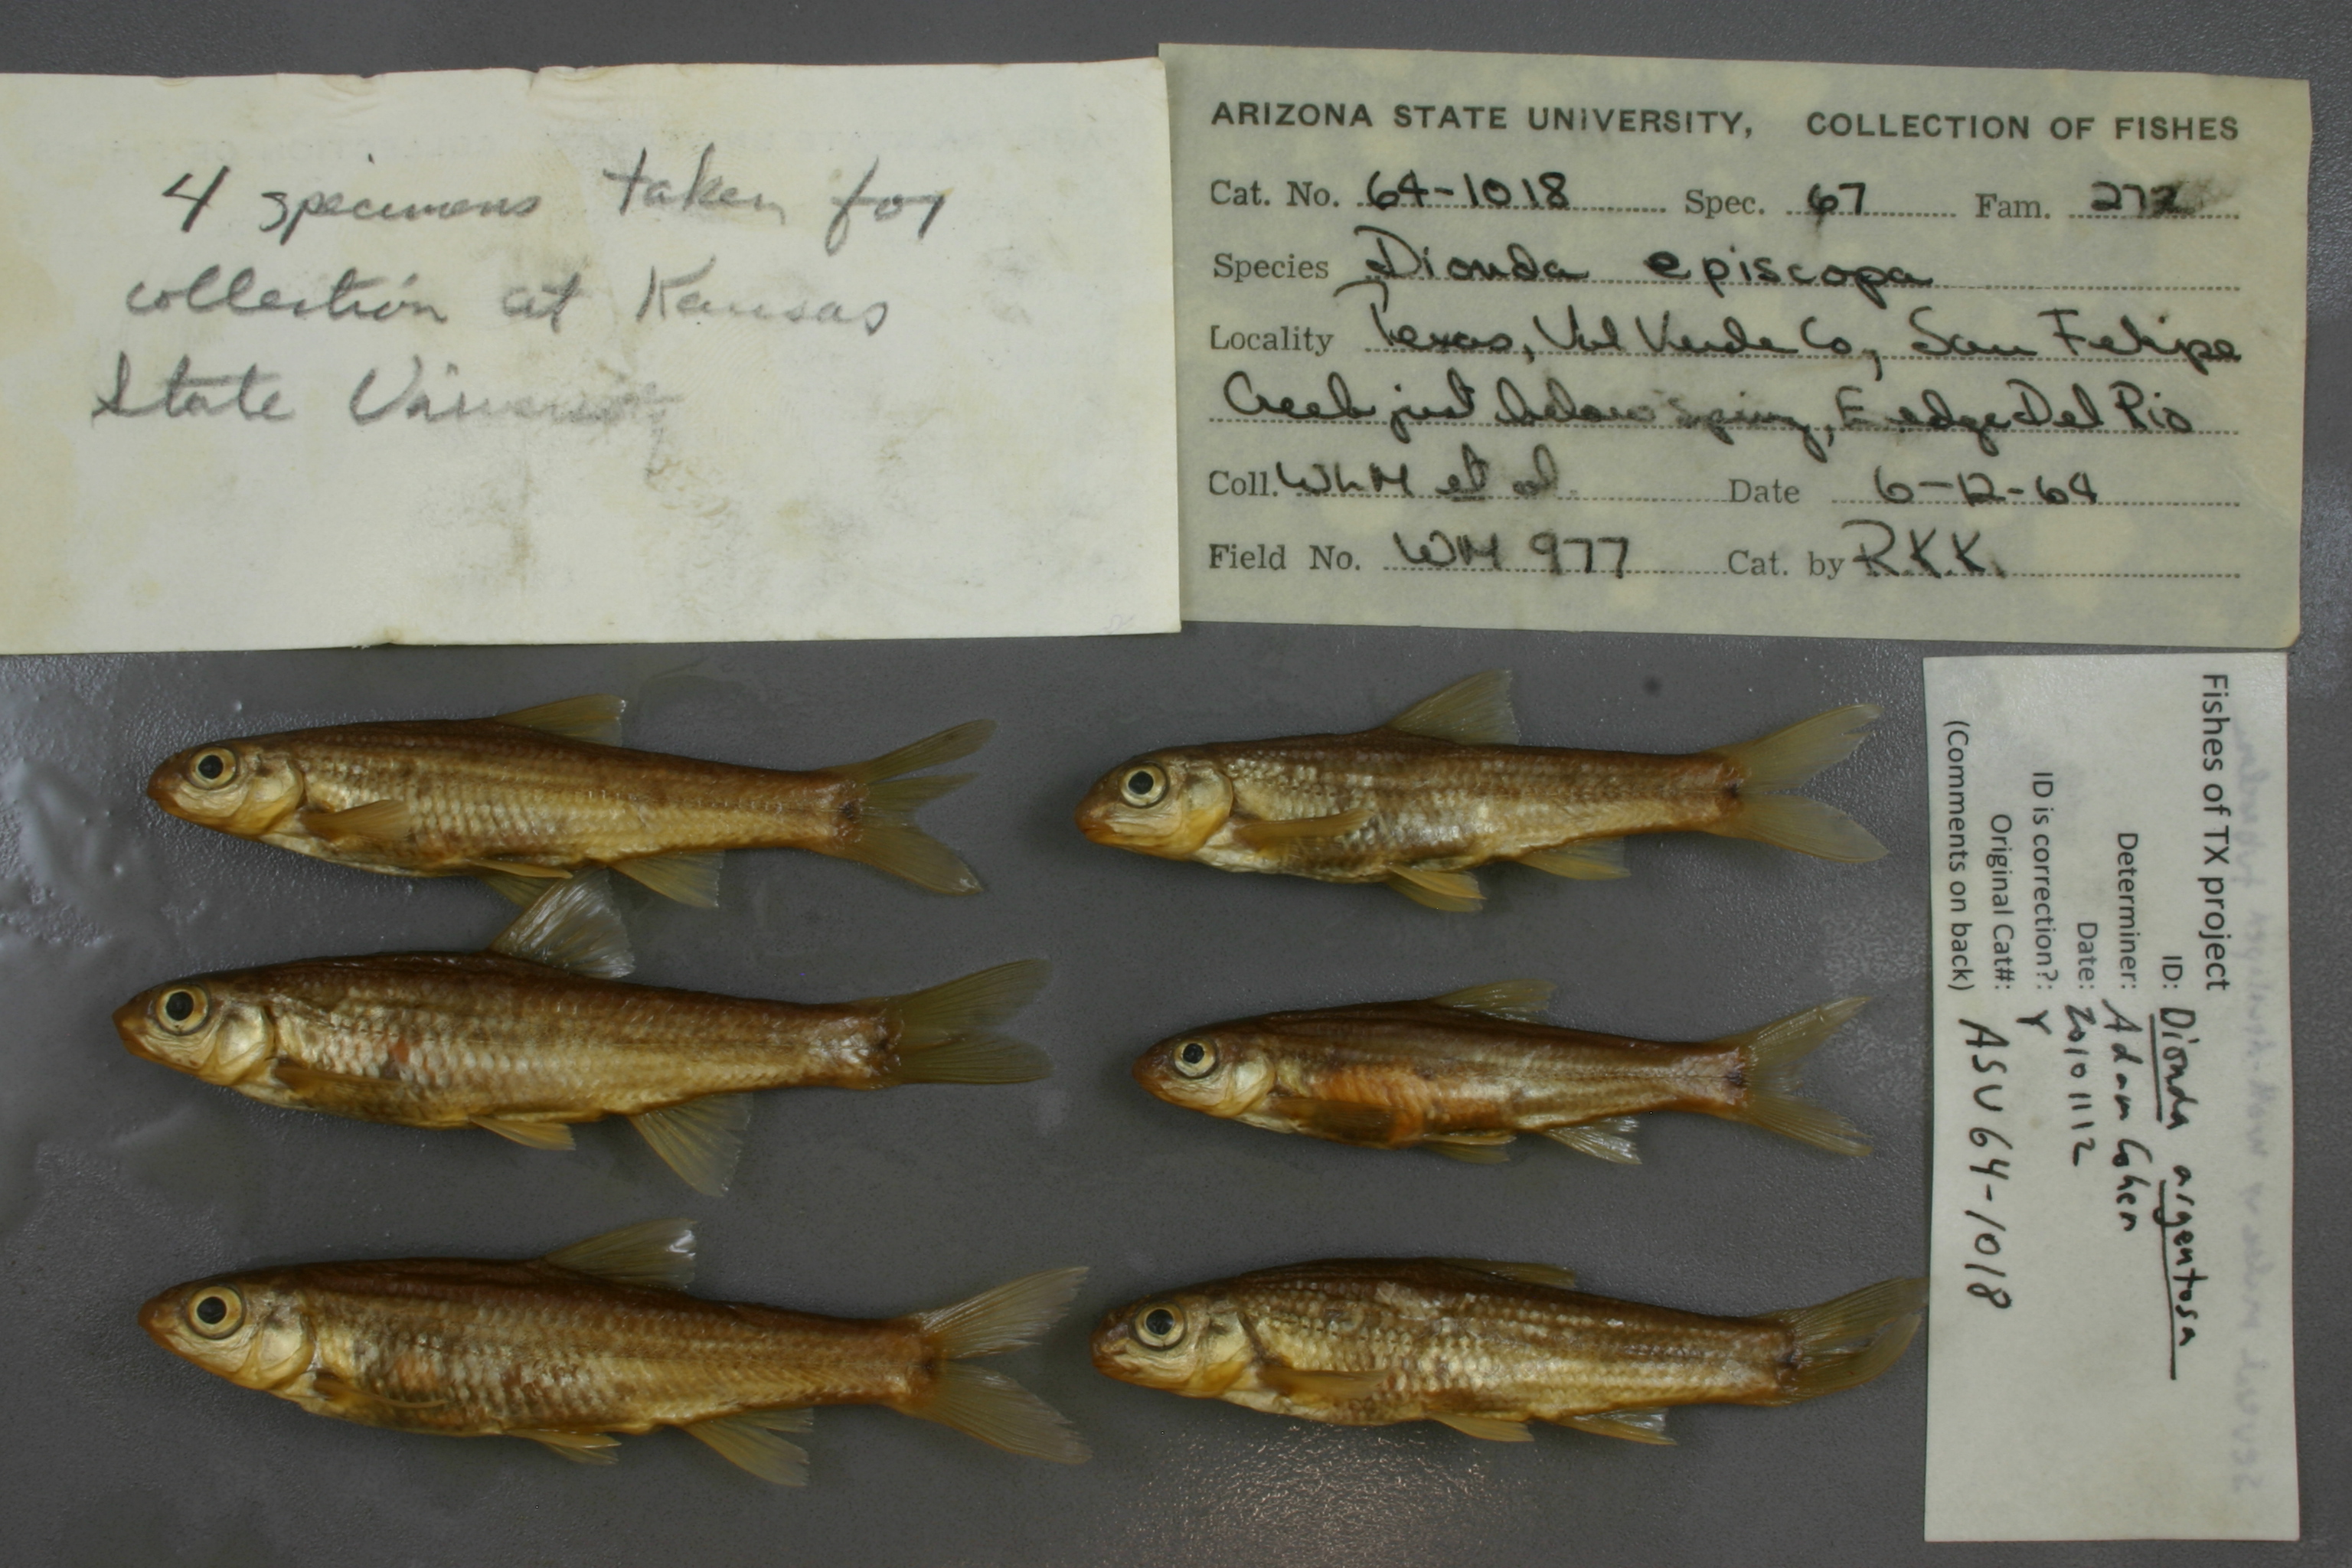 4 specimens taken for
collection at Kansas
State University
ARIZONA STATE UNIVERSITY, COLLECTION OF FISHES
Cat. No. 64-1018 Spec. 67 Fam. 272
Species Dionda episcopa
Locality Texas, Val Verde Co, San Felipe
Creek just below spring, E edge Del Rio
Coll. WLM et al. Date 6-12-64
Field No. WM 977 Cat. by RKK.
Fishes of TX project
ID: Dionda argentosa
Determiner: Adam Cohen
Date: 20101112
ID is correction?: Y
Original Cat#: ASU 64-1018
(Comments on back)